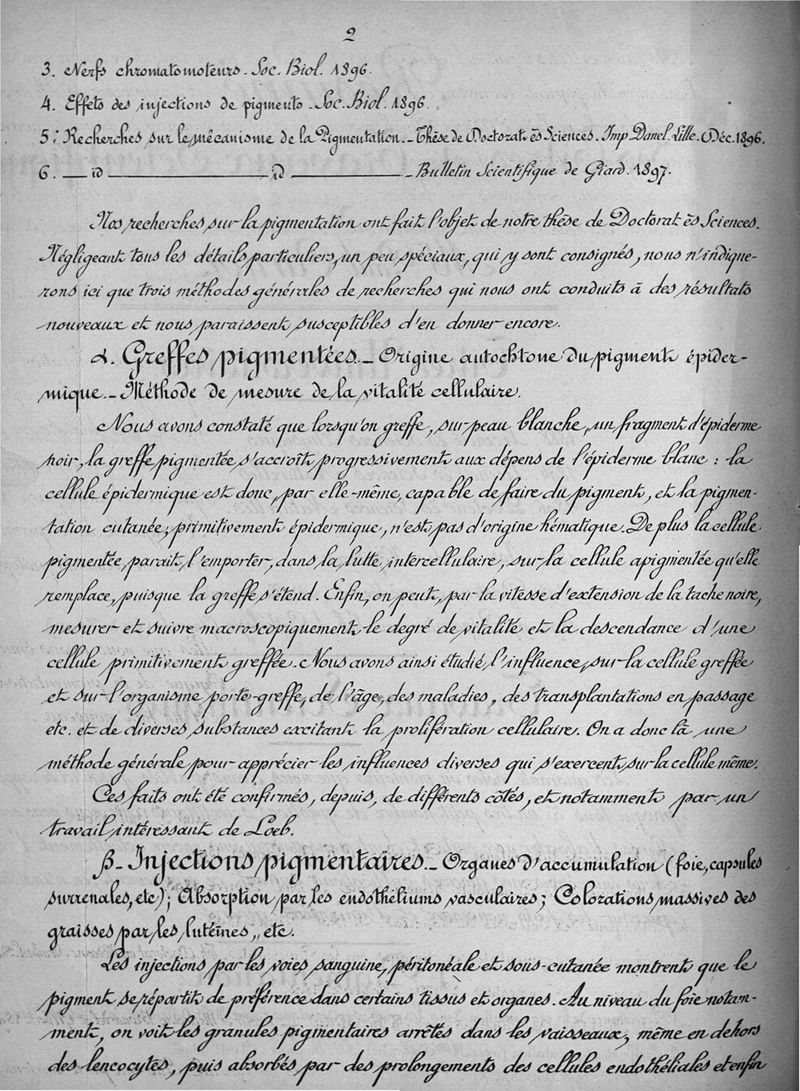 2
3. Nerfs chromatomoteurs. Soc. Biol. 1896.
4. Effets des injections de pigments. Soc. Biol. 1896.
5. Recherches sur le mécanisme de la Pigmentation. _ Thèse de Doctorat ès Sciences. Imp Danel. Lille. Déc. 1896.
6. __ id ____________ id __________ Bulletin Scientifique de Giard. 1897.
Nos recherches sur la pigmentation ont fait l'objet de notre thèse de Doctorat ès Sciences.
Négligeant tous les détails particuliers, un peu spéciaux, qui y sont consignés, nous n'indique-
rons ici que trois méthodes générales de recherches qui nous ont conduits à des résultats
nouveaux et nous paraissent susceptibles d'en donner encore.
α. Greffes pigmentées. _ Origine autochtone du pigment épider-
mique. _ Méthode de mesure de la vitalité cellulaire.
Nous avons constaté que lorsqu'on greffe, sur peau blanche, un fragment d'épiderme
noir, la greffe pigmentée s'accroît progressivement aux dépens de l'épiderme blanc : la
cellule épidermique est donc, par elle-même, capable de faire du pigment, et la pigmen-
tation cutanée, primitivement épidermique, n'est pas d'origine hématique. De plus la cellule
pigmentée paraît l'emporter, dans la lutte intercellulaire, sur la cellule apigmentée qu'elle
remplace, puisque la greffe s'étend. Enfin, on peut, par la vitesse d'extension de la tache noire,
mesurer et suivre macroscopiquement le degré de vitalité et la descendance d'une
cellule primitivement greffée. Nous avons ainsi étudié l'influence, sur la cellule greffée
et sur l'organisme porte-greffe, de l'âge, des maladies, des transplantations en passage
etc. et de diverses substances excitant la prolifération cellulaire. On a donc là une
méthode générale pour apprécier les influences diverses qui s'exercent sur la cellule même.
Ces faits ont été confirmés, depuis, de différents côtés, et notamment par un
travail intéressant de Loeb.
β _ Injections pigmentaires. _ Organes d'accumulation (foie, capsules
surrenales, etc) ; Absorption par les endothéliums vasculaires ; Colorations massives des
graisses par les lutéïnes, etc
Les injections par les voies sanguine, péritonéale et sous-cutanée montrent que le
pigment se répartit de préférence dans certains tissus et organes. Au niveau du foie notam-
ment, on voit les granules pigmentaires arrêtés dans les vaisseaux, même en dehors
des leucocytes, puis absorbés par des prolongements des cellules endothéliales et enfin